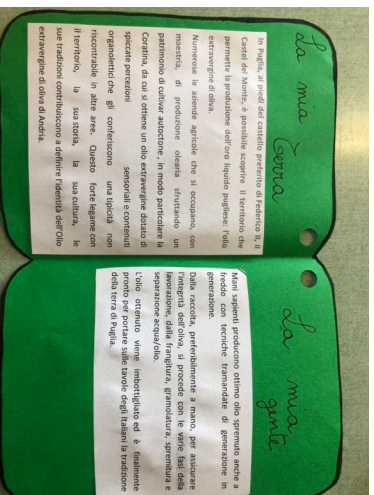 La mia
Terra
In Puglia, ai piedi del castello preferito di Federico II, il
Castel del Monte, è possibile scoprire il territorio che
permette la produzione dell'oro liquido pugliese: l'olio
extravergine di oliva.
Numerose le aziende agricole che si occupano, con
maestria, di produzione olearia sfruttando un
patrimonio di cultivar autoctone, in modo particolare la
Coratina, da cui si ottiene un olio extravergine dotato di
spiccate percezioni sensoriali e contenuti
organolettici che gli conferiscono una tipicità non
riscontrabile in altre aree. Questo forte legame con
il territorio, la sua storia, la sua cultura, le
sue tradizioni contribuiscono a definire l'identità dell'Olio
extravergine di oliva di Andria.
La mia
gente
Mani sapienti producono ottimo olio spremuto anche a
freddo con tecniche tramandate di generazione in
generazione.
Dalla raccolta, preferibilmente a mano, per assicurare
l'integrità dell'oliva, si procede con le varie fasi della
lavorazione, dalla frangitura, gramolatura, spremitura e
separazione acqua/olio.
L'olio ottenuto viene imbottigliato ed è finalmente
pronto per portare sulle tavole degli Italiani la tradizione
della terra di Puglia.